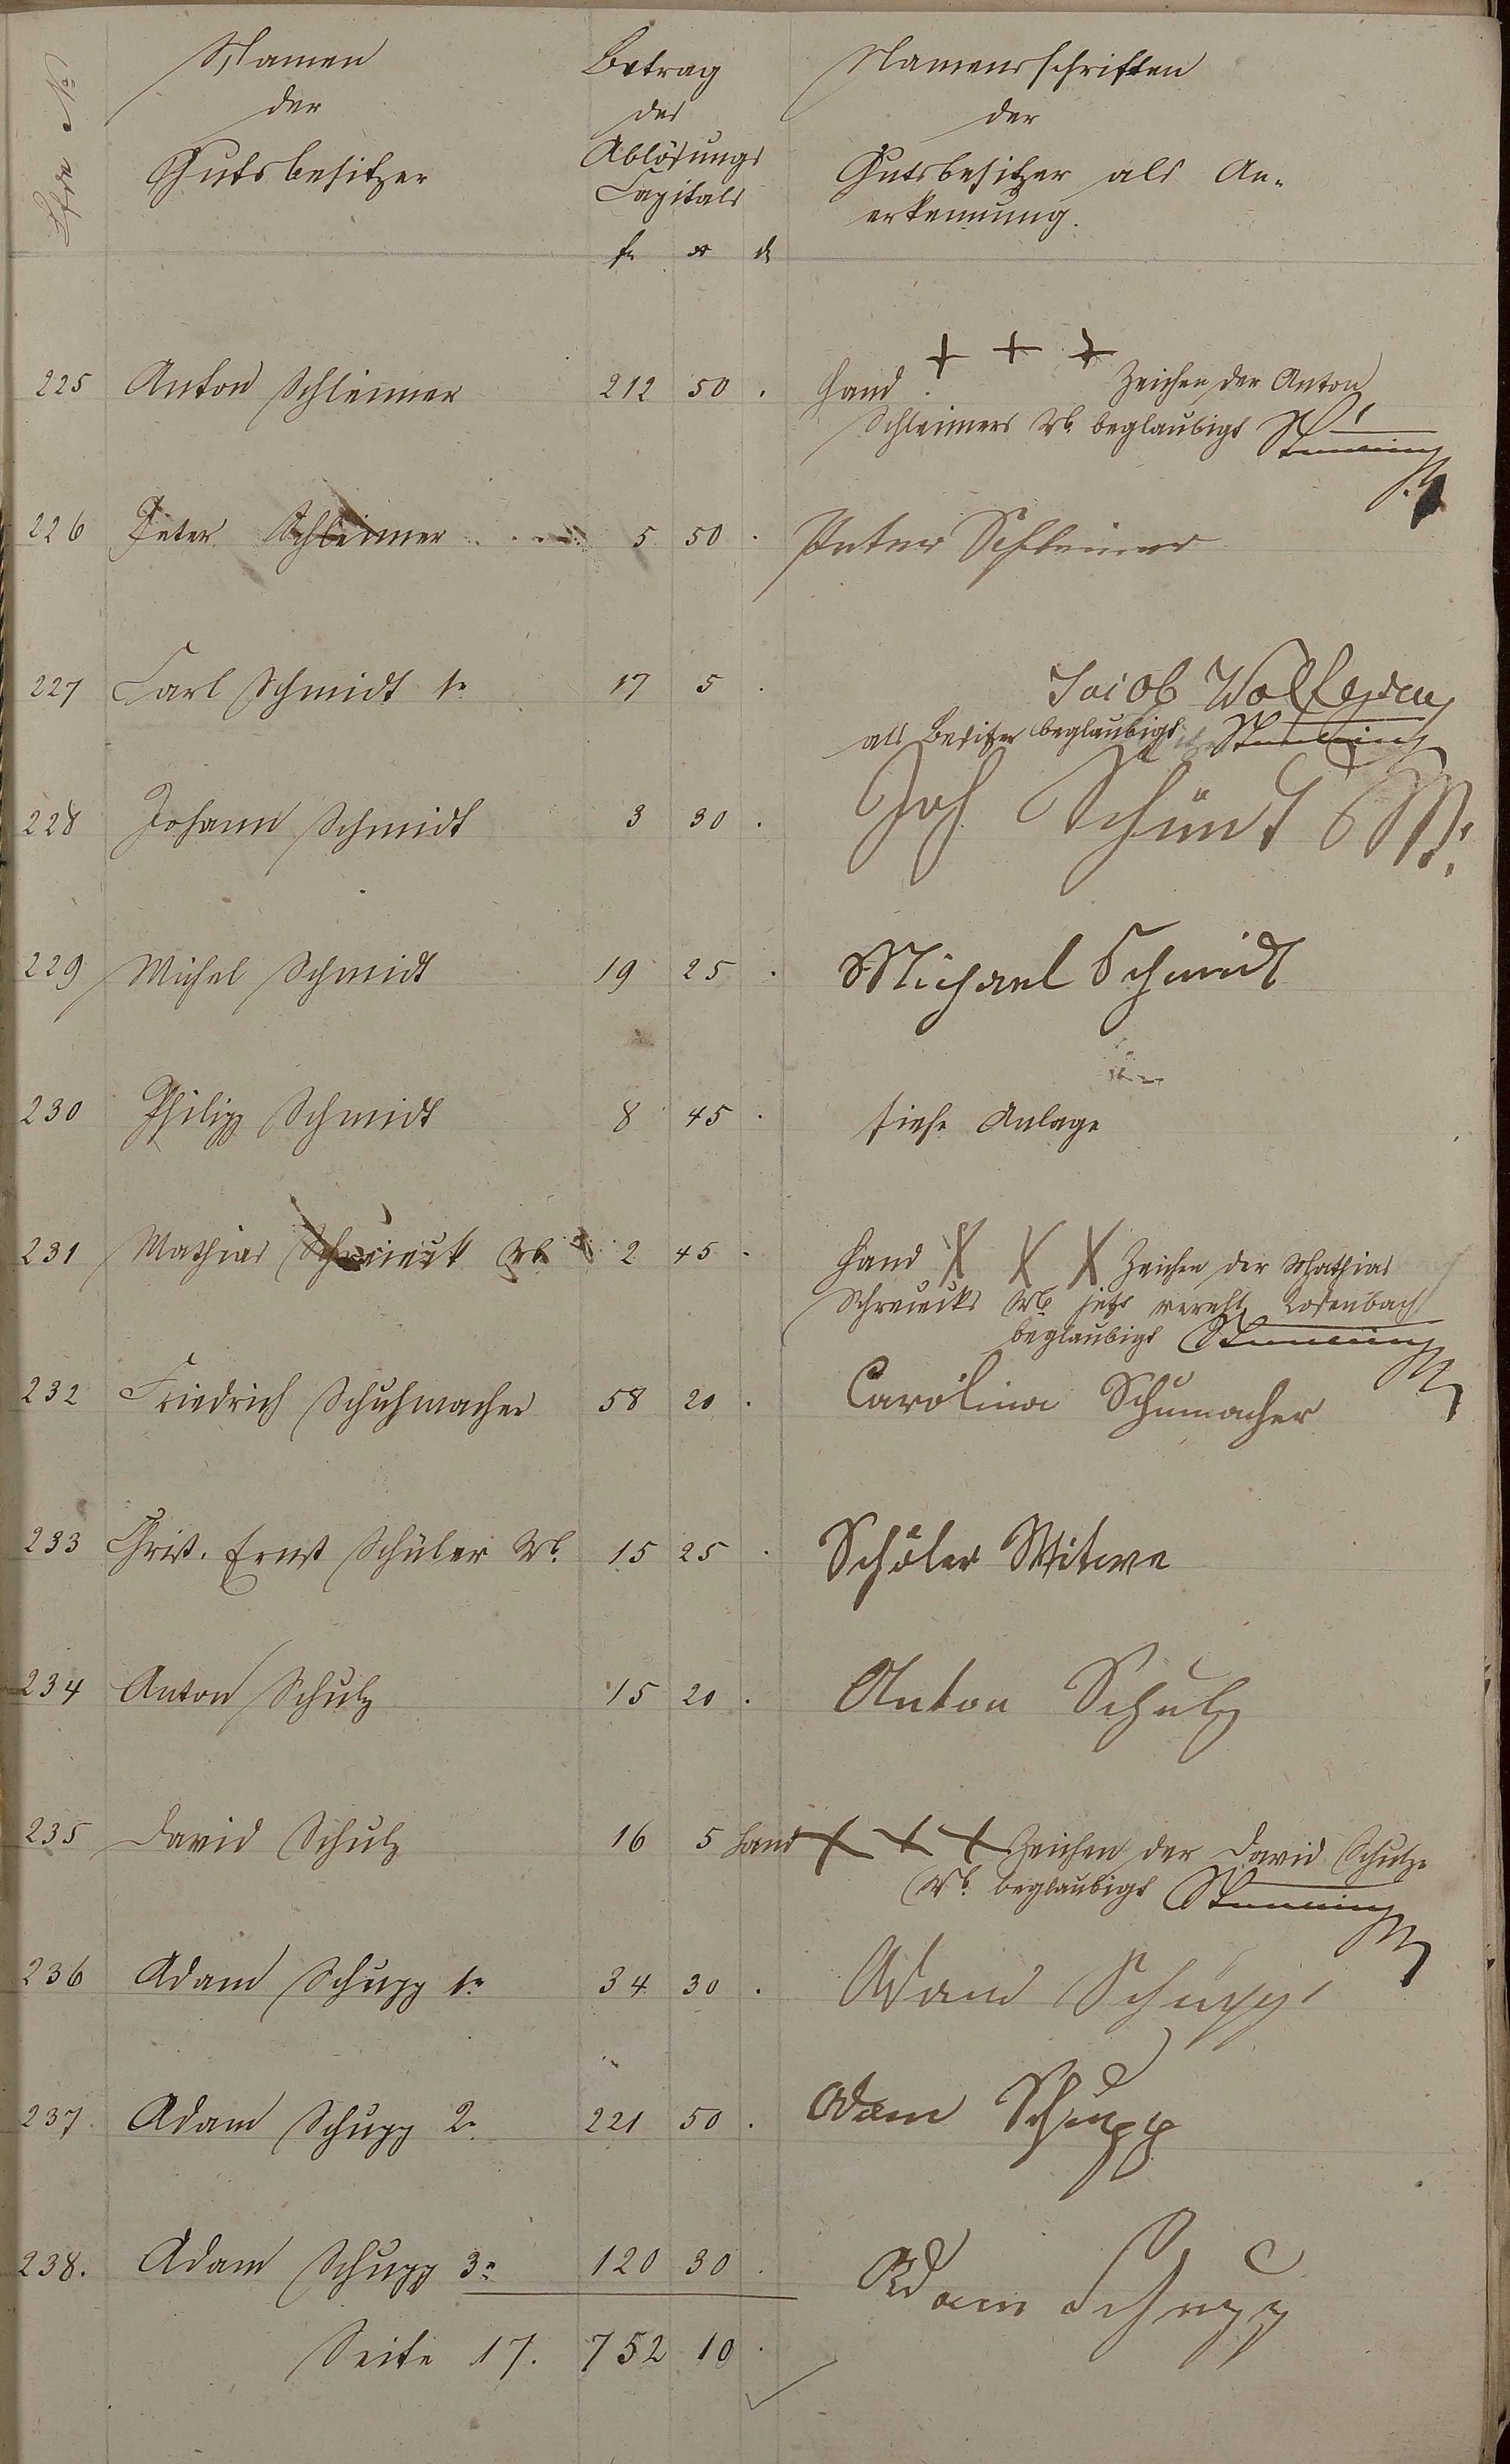 Namen
der
Gutsbesitzer
Betrag
des
Ablösungs
Capitals
fl x d
Namensschriften
der
Gutsbesitzer als An-
erkennung.
225 Anton Schleimer 212 50 . Hand + + + Zeichen der Anton
Schleimers Wb. beglaubigt
226 Peter Schleimer 5 50 . Peter Schleimer
227 Carl Schmidt 1r 17 5 . Jacob
als Besitzer beglaubigt
228 Johann Schmidt 3 30 . Joh
229 Michel Schmidt 19 25 . Michael Schmidt
230 Philipp Schmidt 8 45 . siehe Anlage
231 Mathias Wb 2 45 . Hand X X X Zeichen der Mathias
Wb jetzt verehl.
beglaubigt
232 Friedrich Schuhmacher 58 20 . Carolina Schumacher
233 Christ. Ernst Schüler Wb. 15 25 . Schüler Witwe
234 Anton Schulz 15 20 . Anton Schulz
235 David Schulz 16 5 Hand + + + Zeichen der David Schulze
Wb. beglaubigt
236 Adam Schupp 1r 34 30 . Adam Schupp
237. Adam Schupp 2r 221 50 . Adam Schupp
238. Adam Schupp 3r 120 30 . Adam Schupp
Seite 17. 752 10 .